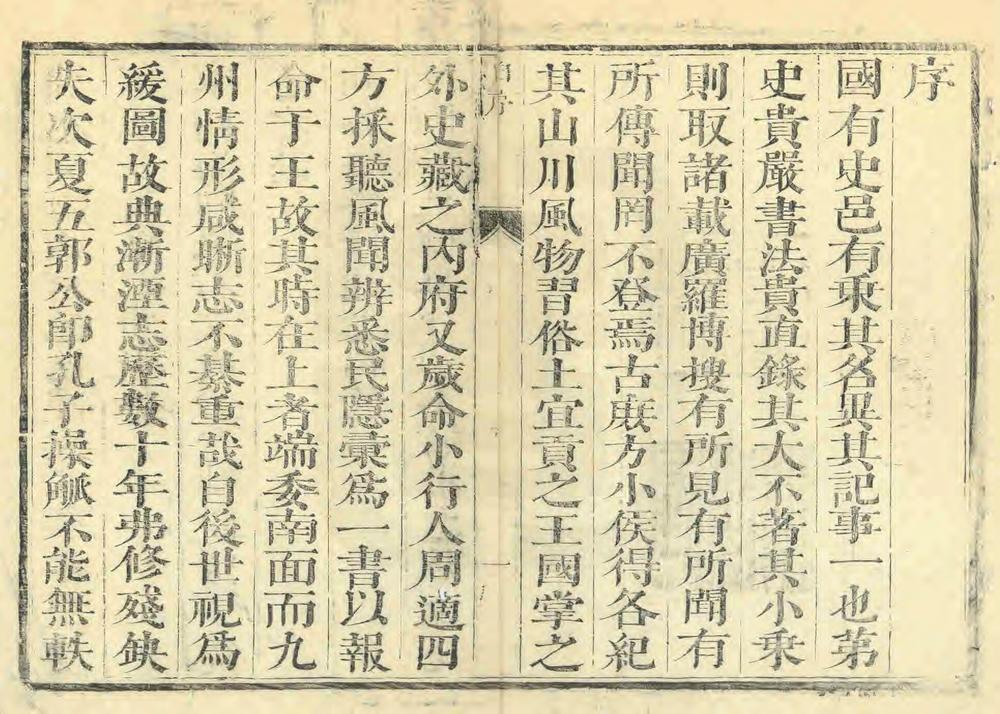 序
國有史邑有乘其名異其記事一也第
史貴嚴書法貴直錄其大不著其小乘
則取諸載廣羅博搜有所見有所聞有
所傳聞罔不登焉古庶方小侯得各紀
其山川風物習俗土宜貢之王國掌之
序
一
外史藏之内府又歲命小行人周適四
方採聽風聞辨悉民隱彙爲一書以報
命于王故其時在上者端委南面而九
州情形咸晰志不綦重哉自後世視爲
緩圖故典漸湮志歷數十年弗修殘缺
失次夏五郭公卽孔子操觚不能無軼